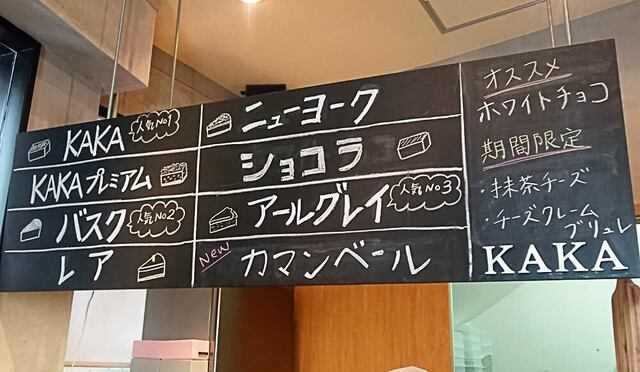 KAKA 人気No1
KAKAプレミアム
バスク 人気No2
レア
ニューヨーク
ショコラ
アールグレイ 人気No3
New カマンベール
オススメ
ホワイトチョコ
期間限定
・抹茶チーズ
・チーズクレーム
ブリュレ
KAKA